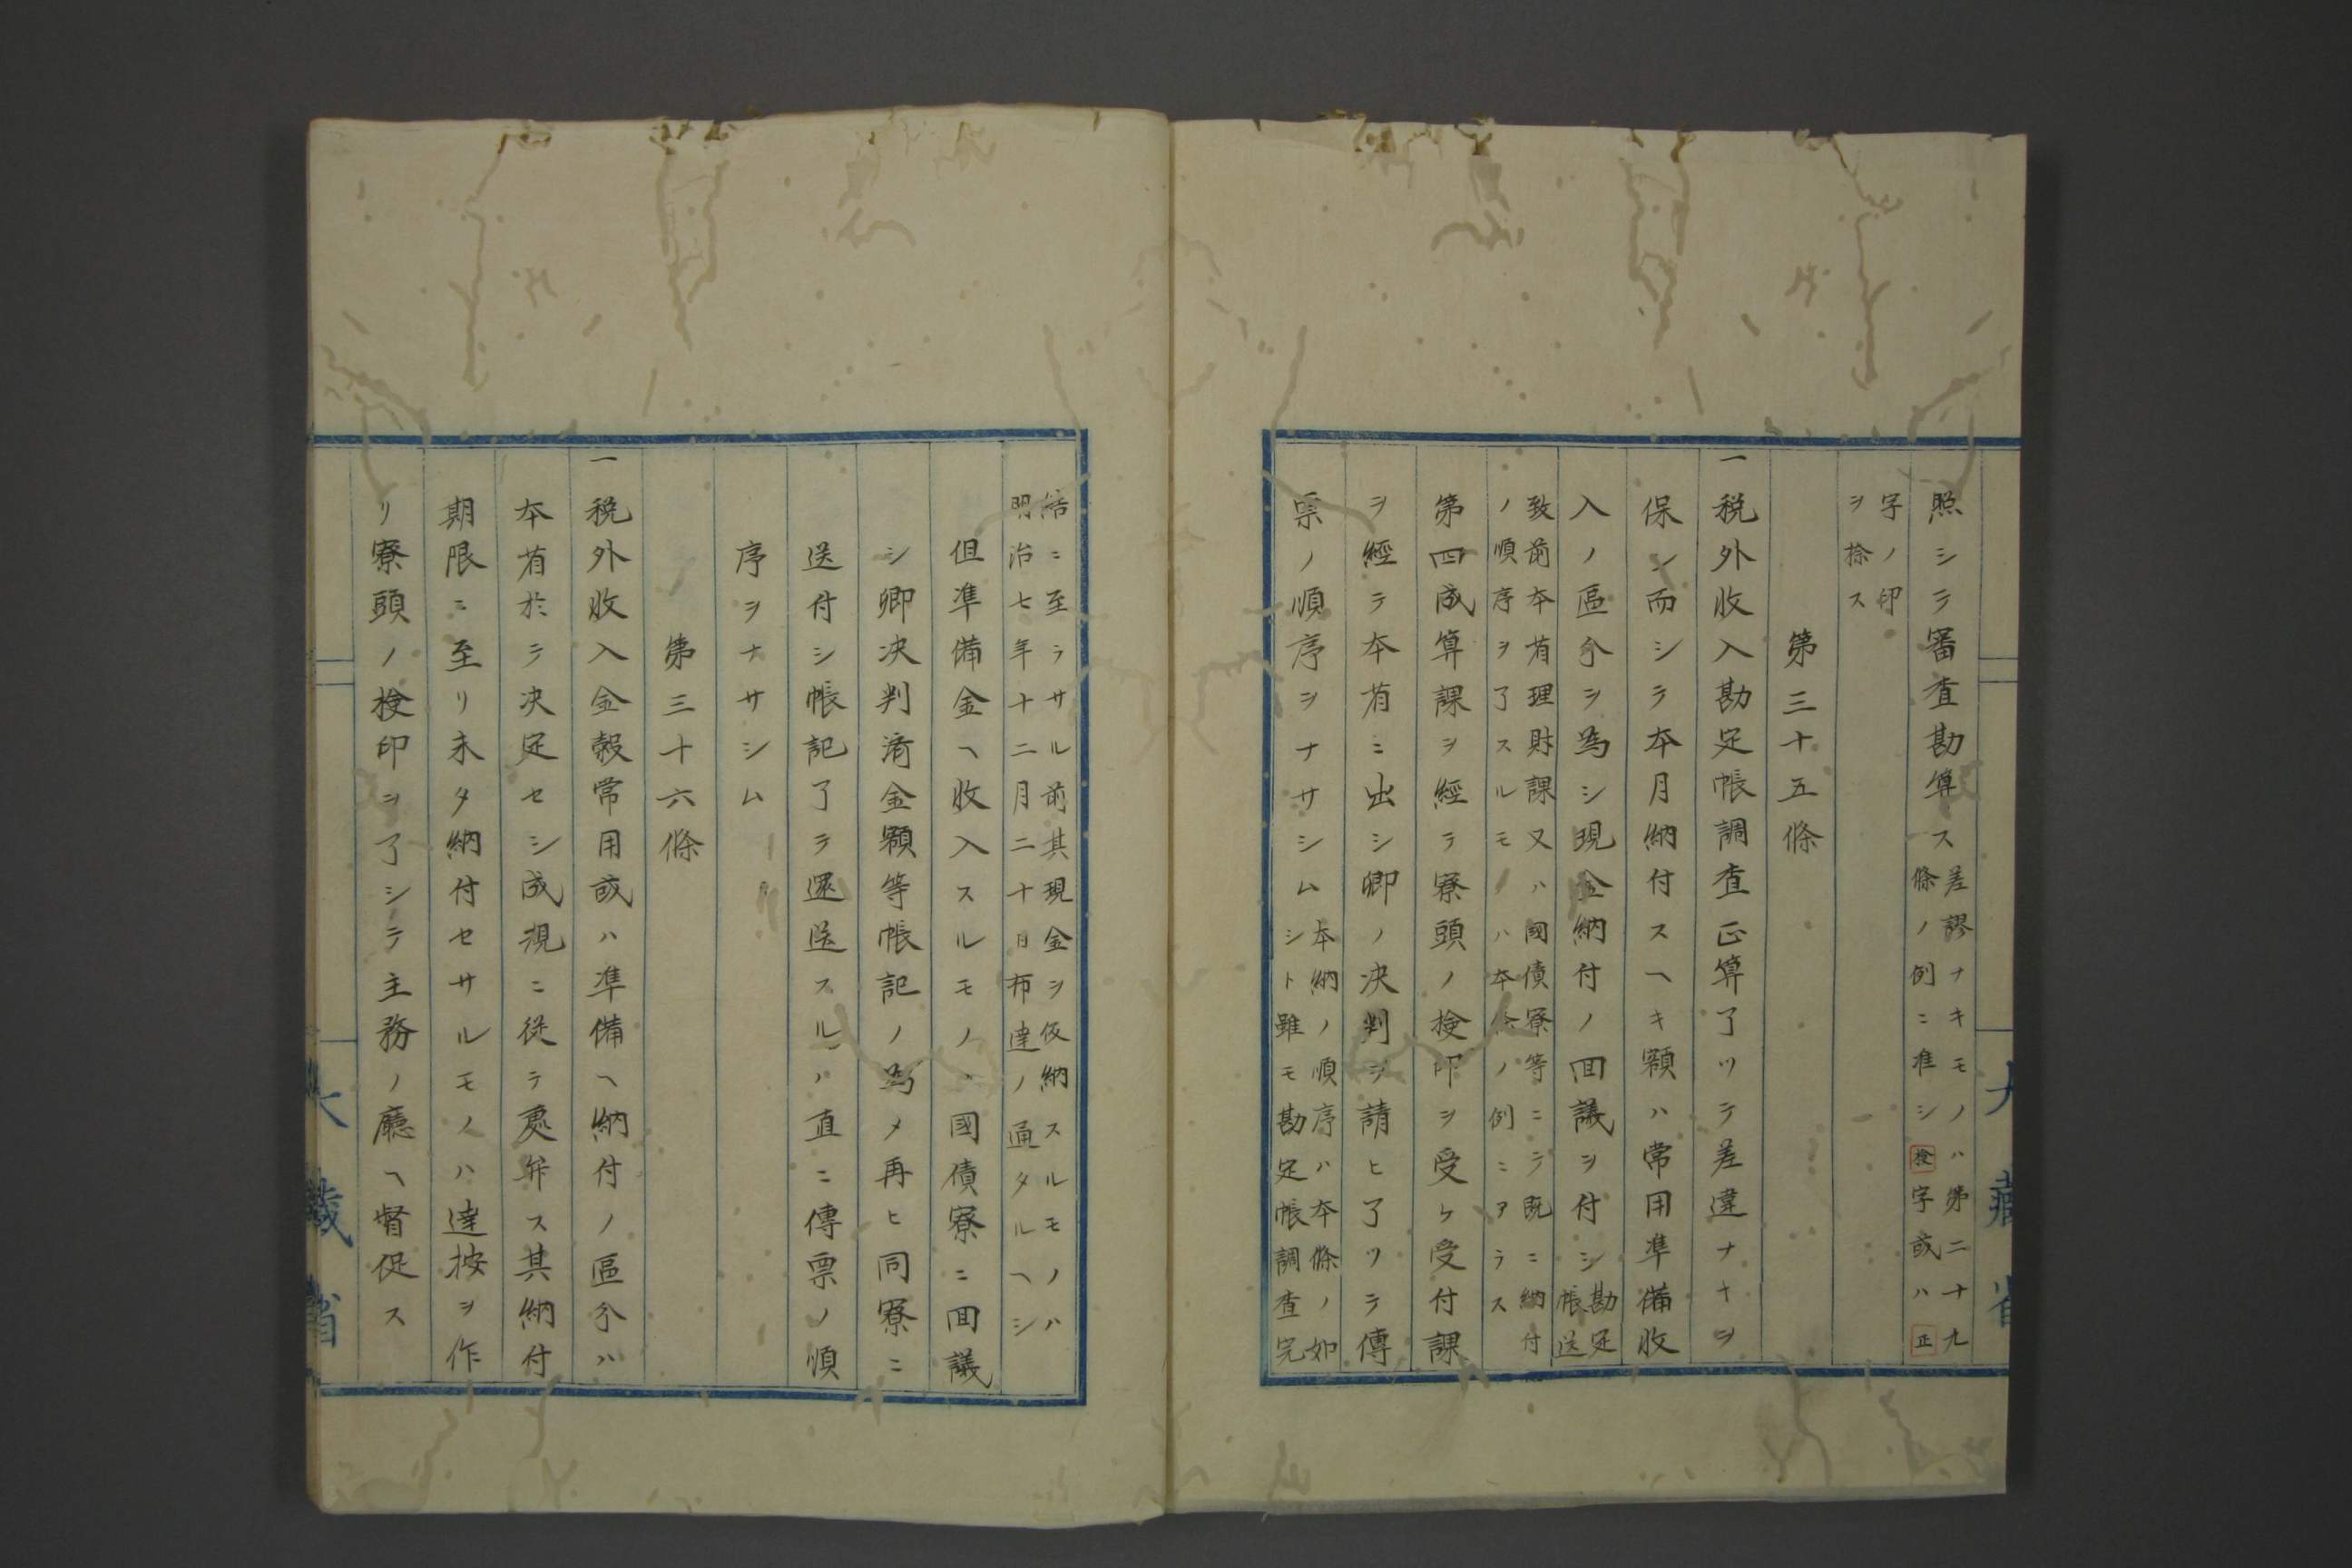 照シテ審査勘算ス差謬ナキモノハ第二十九
條ノ例ニ准シ検字或ハ正
字ノ印
ヲ捺ス
第三十五條
一税外收入勘定帳調査正算了リテ差違ナキヲ
保シ而シテ本月納付スヘキ額ハ常用準備收
入ノ區分ヲ為シ現金納付ノ回議ヲ付シ勘定
帳送
致前本省理財課又ハ國債寮等ニテ既ニ納付
ノ順序ヲ了スルモノハ本條ノ例ニアラス
第四成算課ヲ經テ寮頭ノ検印ヲ受ケ受付課
ヲ經テ本省ニ出シ卿ノ决判ヲ請ヒ了リテ傳
票ノ順序ヲナサシム本納ノ順序ハ本條ノ如
シト雖モ勘定帳調査完
結ニ至ラサル前其現金ヲ仮納スルモノハ
明治七年十二月二十日布達ノ通タルヘシ
但準備金ヘ收入スルモノハ國債寮ニ回議
シ卿决判濟金額等帳記ノ為メ再ヒ同寮ニ
送付シ帳記了テ還送スルハ直ニ傳票ノ順
序ヲナサシム
第三十六條
一税外收入金穀常用或ハ準備ヘ納付ノ區分ハ
本省於テ决定セシ成規ニ從テ處弁ス其納付
期限ニ至リ未タ納付セサルモノハ達按ヲ作
リ寮頭ノ検印ヲ了シテ主務ノ廳ヘ督促ス
大藏省